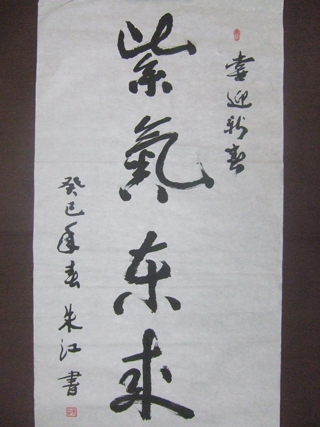 喜迎新春
紫氣东来
癸巳年春 朱江書